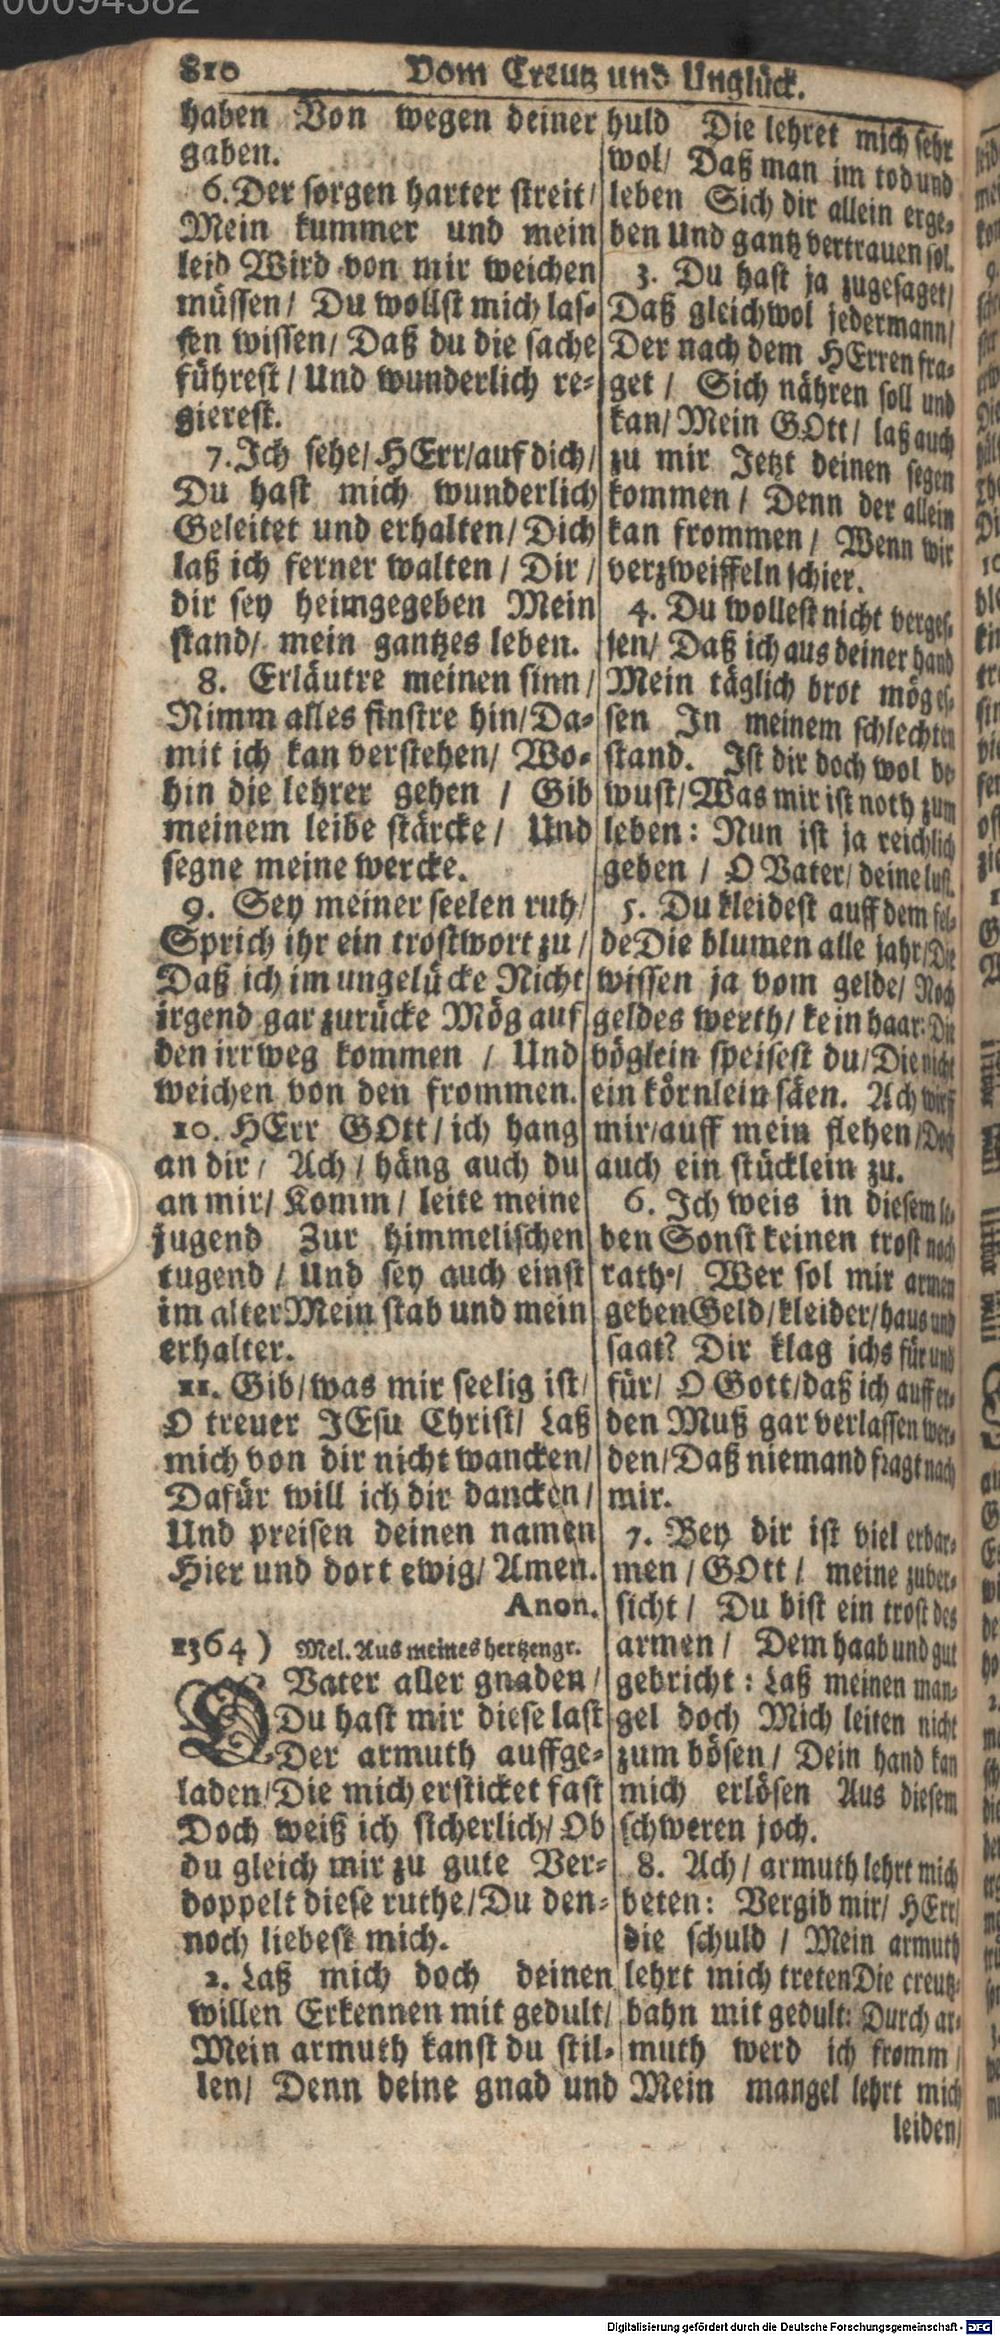 00094382
810 Vom Creutz und Unglück.
haben Von wegen deiner
gaben.
6. Der sorgen harter streit/
Mein kummer und mein
leid Wird von mir weichen
müssen/ Du wollst mich las-
sen wissen/ Daß du die sache
führest/ Und wunderlich re-
gierest.
7. Ich sehe/ HErr/ auf dich/
Du hast mich wunderlich
Geleitet und erhalten/ Dich
laß ich ferner walten/ Dir/
dir sey heimgegeben Mein
stand/ mein gantzes leben.
8. Erläutre meinen sinn/
Nimm alles finstre hin/ Da-
mit ich kan verstehen/ Wo-
hin die lehrer gehen/ Gib
meinem leibe stärcke/ Und
segne meine wercke.
9. Sey meiner seelen ruh/
Sprich ihr ein trostwort zu/
Daß ich im ungelücke Nicht
irgend gar zurücke Mög auf
den irrweg kommen/ Und
weichen von den frommen.
10. HErr GOtt/ ich hang
an dir/ Ach/ häng auch du
an mir/ Komm/ leite meine
jugend Zur himmelischen
tugend/ Und sey auch einst
im alter Mein stab und mein
erhalter.
11. Gib/ was mir seelig ist/
O treuer JEsu Christ/ Laß
mich von dir nicht wancken/
Dafür will ich dir dancken/
Und preisen deinen namen
Hier und dort ewig/ Amen.
Anon.
1364) Mel. Aus meines hertzen gr.
O Vater aller gnaden/
Du hast mir diese last
Der armuth auffge-
laden/ Die mich ersticket fast
Doch weiß ich sicherlich/ Ob
du gleich mir zu gute Ver-
doppelt diese ruthe/ Du den-
noch liebest mich.
2. Laß mich doch deinen
willen Erkennen mit gedult/
Mein armuth kanst du stil-
len/ Denn deine gnad und
huld Die lehret mich sehr
wol/ Daß man im tod und
leben Sich dir allein erge-
ben Und gantz vertrauen sol.
3. Du hast ja zugesaget/
Daß gleichwol jedermann/
Der nach dem HErren fra-
get/ Sich nähren soll und
kan/ Mein GOtt/ laß auch
zu mir Jetzt deinen segen
kommen/ Denn der allein
kan frommen/ Wenn wir
verzweiffeln schier.
4. Du wollest nicht verges-
sen/ Daß ich aus deiner hand
Mein täglich brot mög es-
sen In meinem schlechten
stand. Ist dir doch wol be-
wust/ Was mir ist noth zum
leben: Nun ist ja reichlich
geben/ O Vater/ deine lust.
5. Du kleidest auff dem fel-
de Die blumen alle jahr/ Die
wissen ja vom gelde/ Noch
geldes werth/ kein haar: Die
vöglein speisest du/ Die nicht
ein körnlein säen. Ach wirff
mir/ auff mein flehen/ Doch
auch ein stücklein zu.
6. Ich weis in diesem le-
ben Sonst keinen trost noch
rath/ Wer sol mir armen
geben Geld/ kleider/ haus und
saat? Dir klag ichs für und
für/ O Gott/ daß ich auff er-
den Muß gar verlassen wer-
den/ Daß niemand fragt nach
mir.
7. Bey dir ist viel erbar-
men/ GOtt/ meine zuver-
sicht/ Du bist ein trost des
armen/ Dem haab und gut
gebricht: Laß meinen man-
gel doch Mich leiten nicht
zum bösen/ Dein hand kan
mich erlösen Aus diesem
schweren joch.
8. Ach/ armuth lehrt mich
beten: Vergib mir/ HErr/
die schuld/ Mein armuth
lehrt mich treten Die creutz-
bahn mit gedult: Durch ar-
muth werd ich fromm/
Mein mangel lehrt mich
leiden/
Digitalisierung gefördert durch die Deutsche Forschungsgemeinschaft - DFG